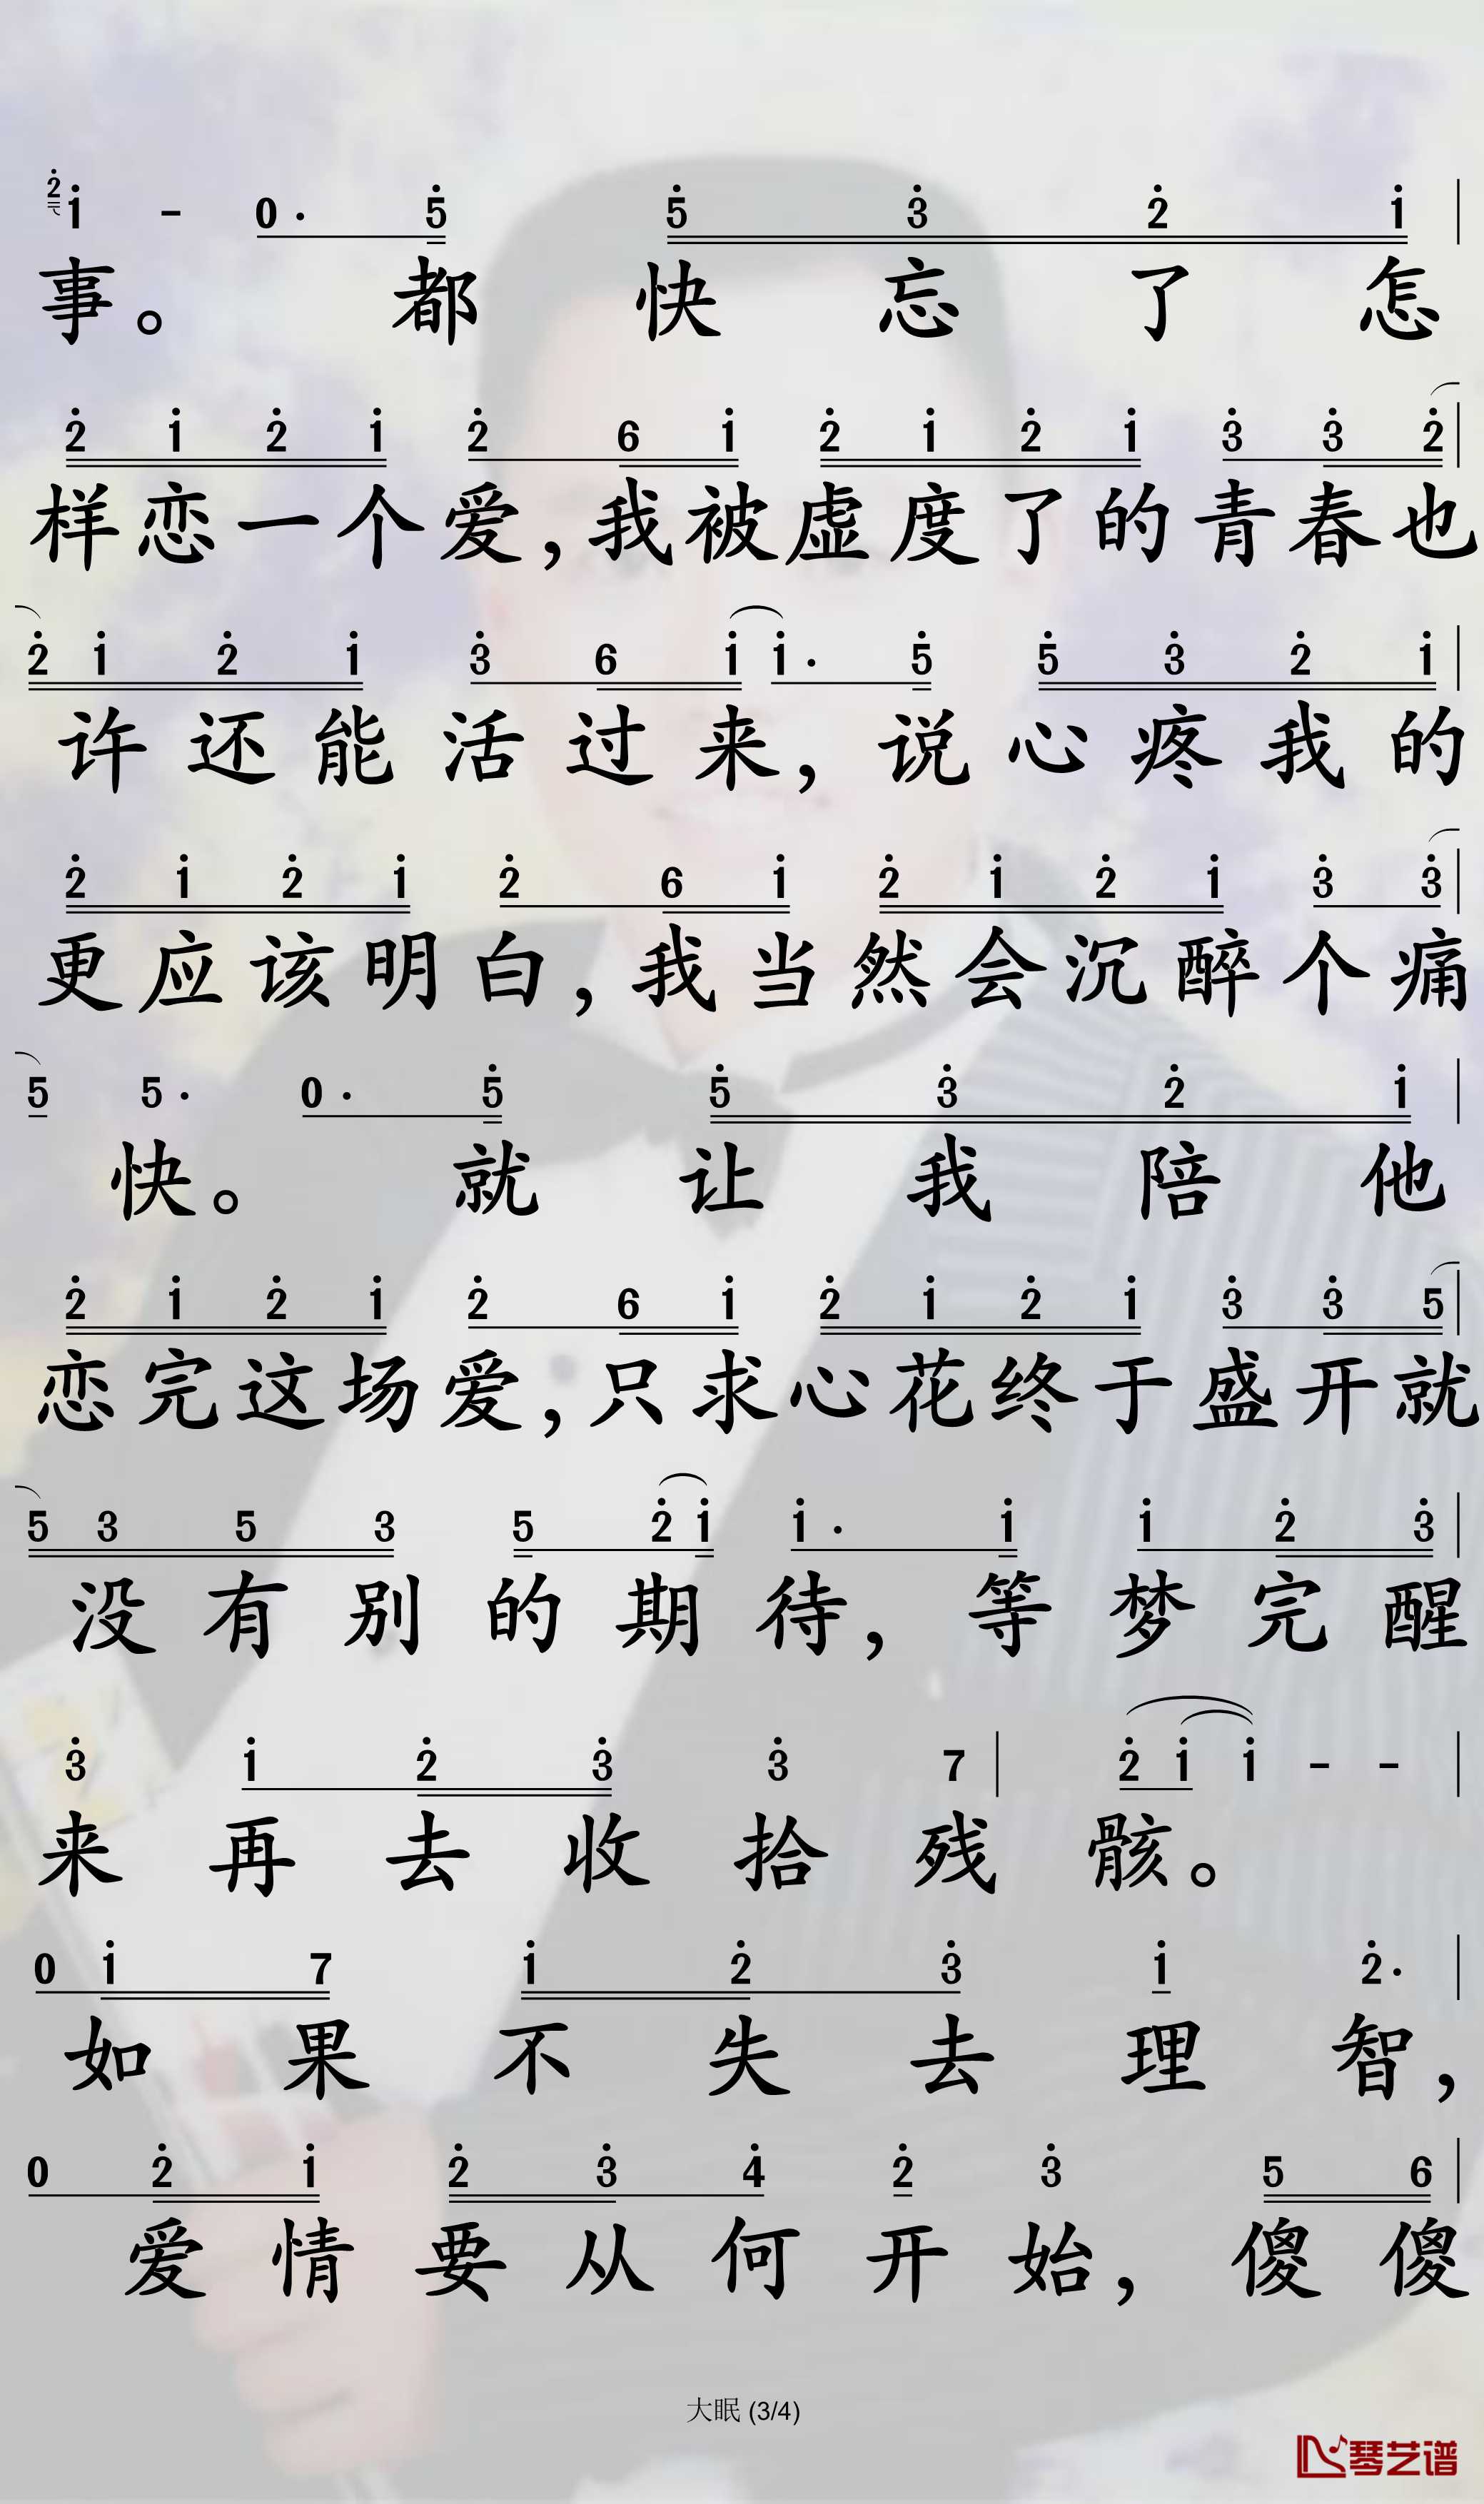 2 1 - 0. 5 5 3 2 1
事。 都 快 忘 了 怎
2 1 2 1 2 6 1 2 1 2 1 3 3 2
样恋一个爱,我被虚度了的青春也
2 1 2 1 3 6 1 1. 5 5 3 2 1
许还能活过来,说心疼我的
2 1 2 1 2 6 1 2 1 2 1 3 3
更应该明白,我当然会沉醉个痛
5 5. 0. 5 5 3 2 1
快。 就 让 我 陪 他
2 1 2 1 2 6 1 2 1 2 1 3 3 5
恋完这场爱,只求心花终于盛开就
5 3 5 3 5 2 1 1. 1 1 2 3
没有别的期待,等梦完醒
3 1 2 3 3 7 2 1 1 - -
来再去收拾残骸。
0 1 7 1 2 3 1 2.
如果不失去理智,
0 2 1 2 3 4 2 3 5 6
爱情要从何开始,傻傻
大眠 (3/4)
琴艺谱